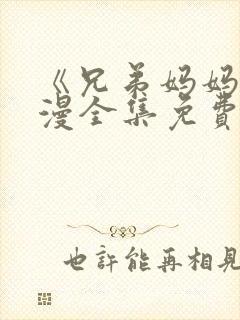 《兄弟妈妈
漫全集免費
也許能再相見